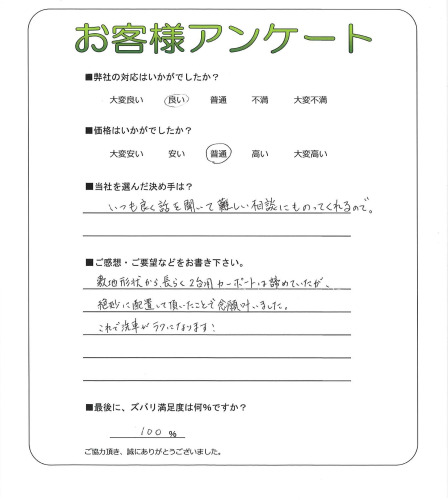 お客様アンケート
■弊社の対応はいかがでしたか？
大変良い 良い 普通 不満 大変不満
■価格はいかがでしたか？
大変安い 安い 普通 高い 大変高い
■当社を選んだ決め手は？
いつも良く話を聞いて難しい相談にものってくれるので。
■ご感想・ご要望などをお書き下さい。
敷地形状から、長らく2台用カーポートは諦めていたが、
絶妙に配置して頂いたことで念願叶いました。
これで洗車がラクになります！
■最後に、ズバリ満足度は何%ですか？
100 %
ご協力頂き、誠にありがとうございました。